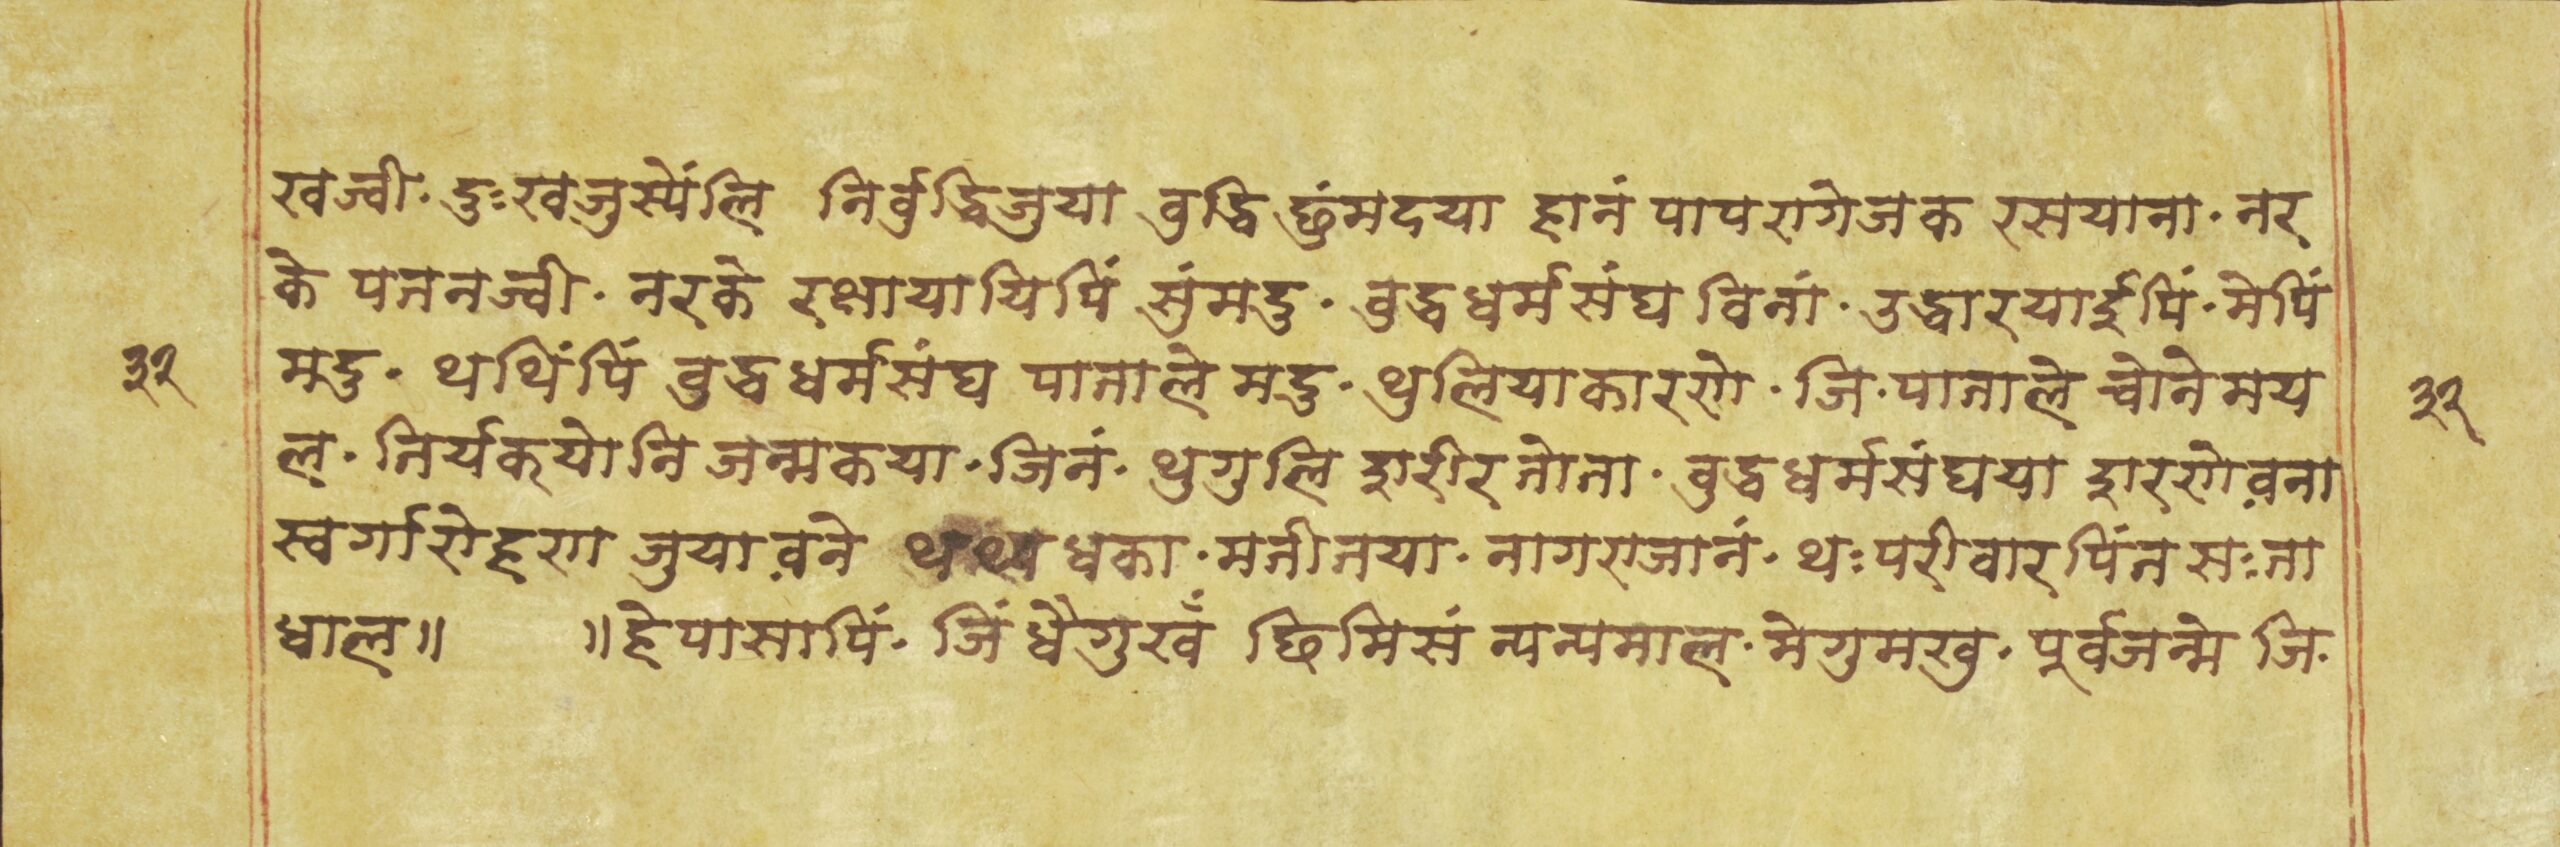 खज्वी· दुःखजुस्येंलि निर्वुद्धिजुया वुद्धि छुंमदया हानं पापरागेजक रसयाना· नर
के पतनज्वी· नरके रक्षायायिपिं सुंमदु· वुद्धधर्मसंघ विनां· उद्धारयाईपिं· मेपिं
३२ मदु· थथिंपिं वुद्धधर्मसंघ पाताले मदु· थुलियाकारणे· जि· पाताले चोनेमय ३२
ल· तिर्यक्योनि जन्मकया· जिनं· थुगुलि शरीर तोता· वुद्धधर्मसंघया शरणेव़ना
स्वर्गारोहण जुयाव़ने धका· मतीतया· नागराजानं· थःपरीवारपिंत सःता
धाल॥ ॥हेपासापिं· जिं धैगुखँ छिमिसं न्यन्यमाल· मेगुमखु· पूर्वजन्मे जि·